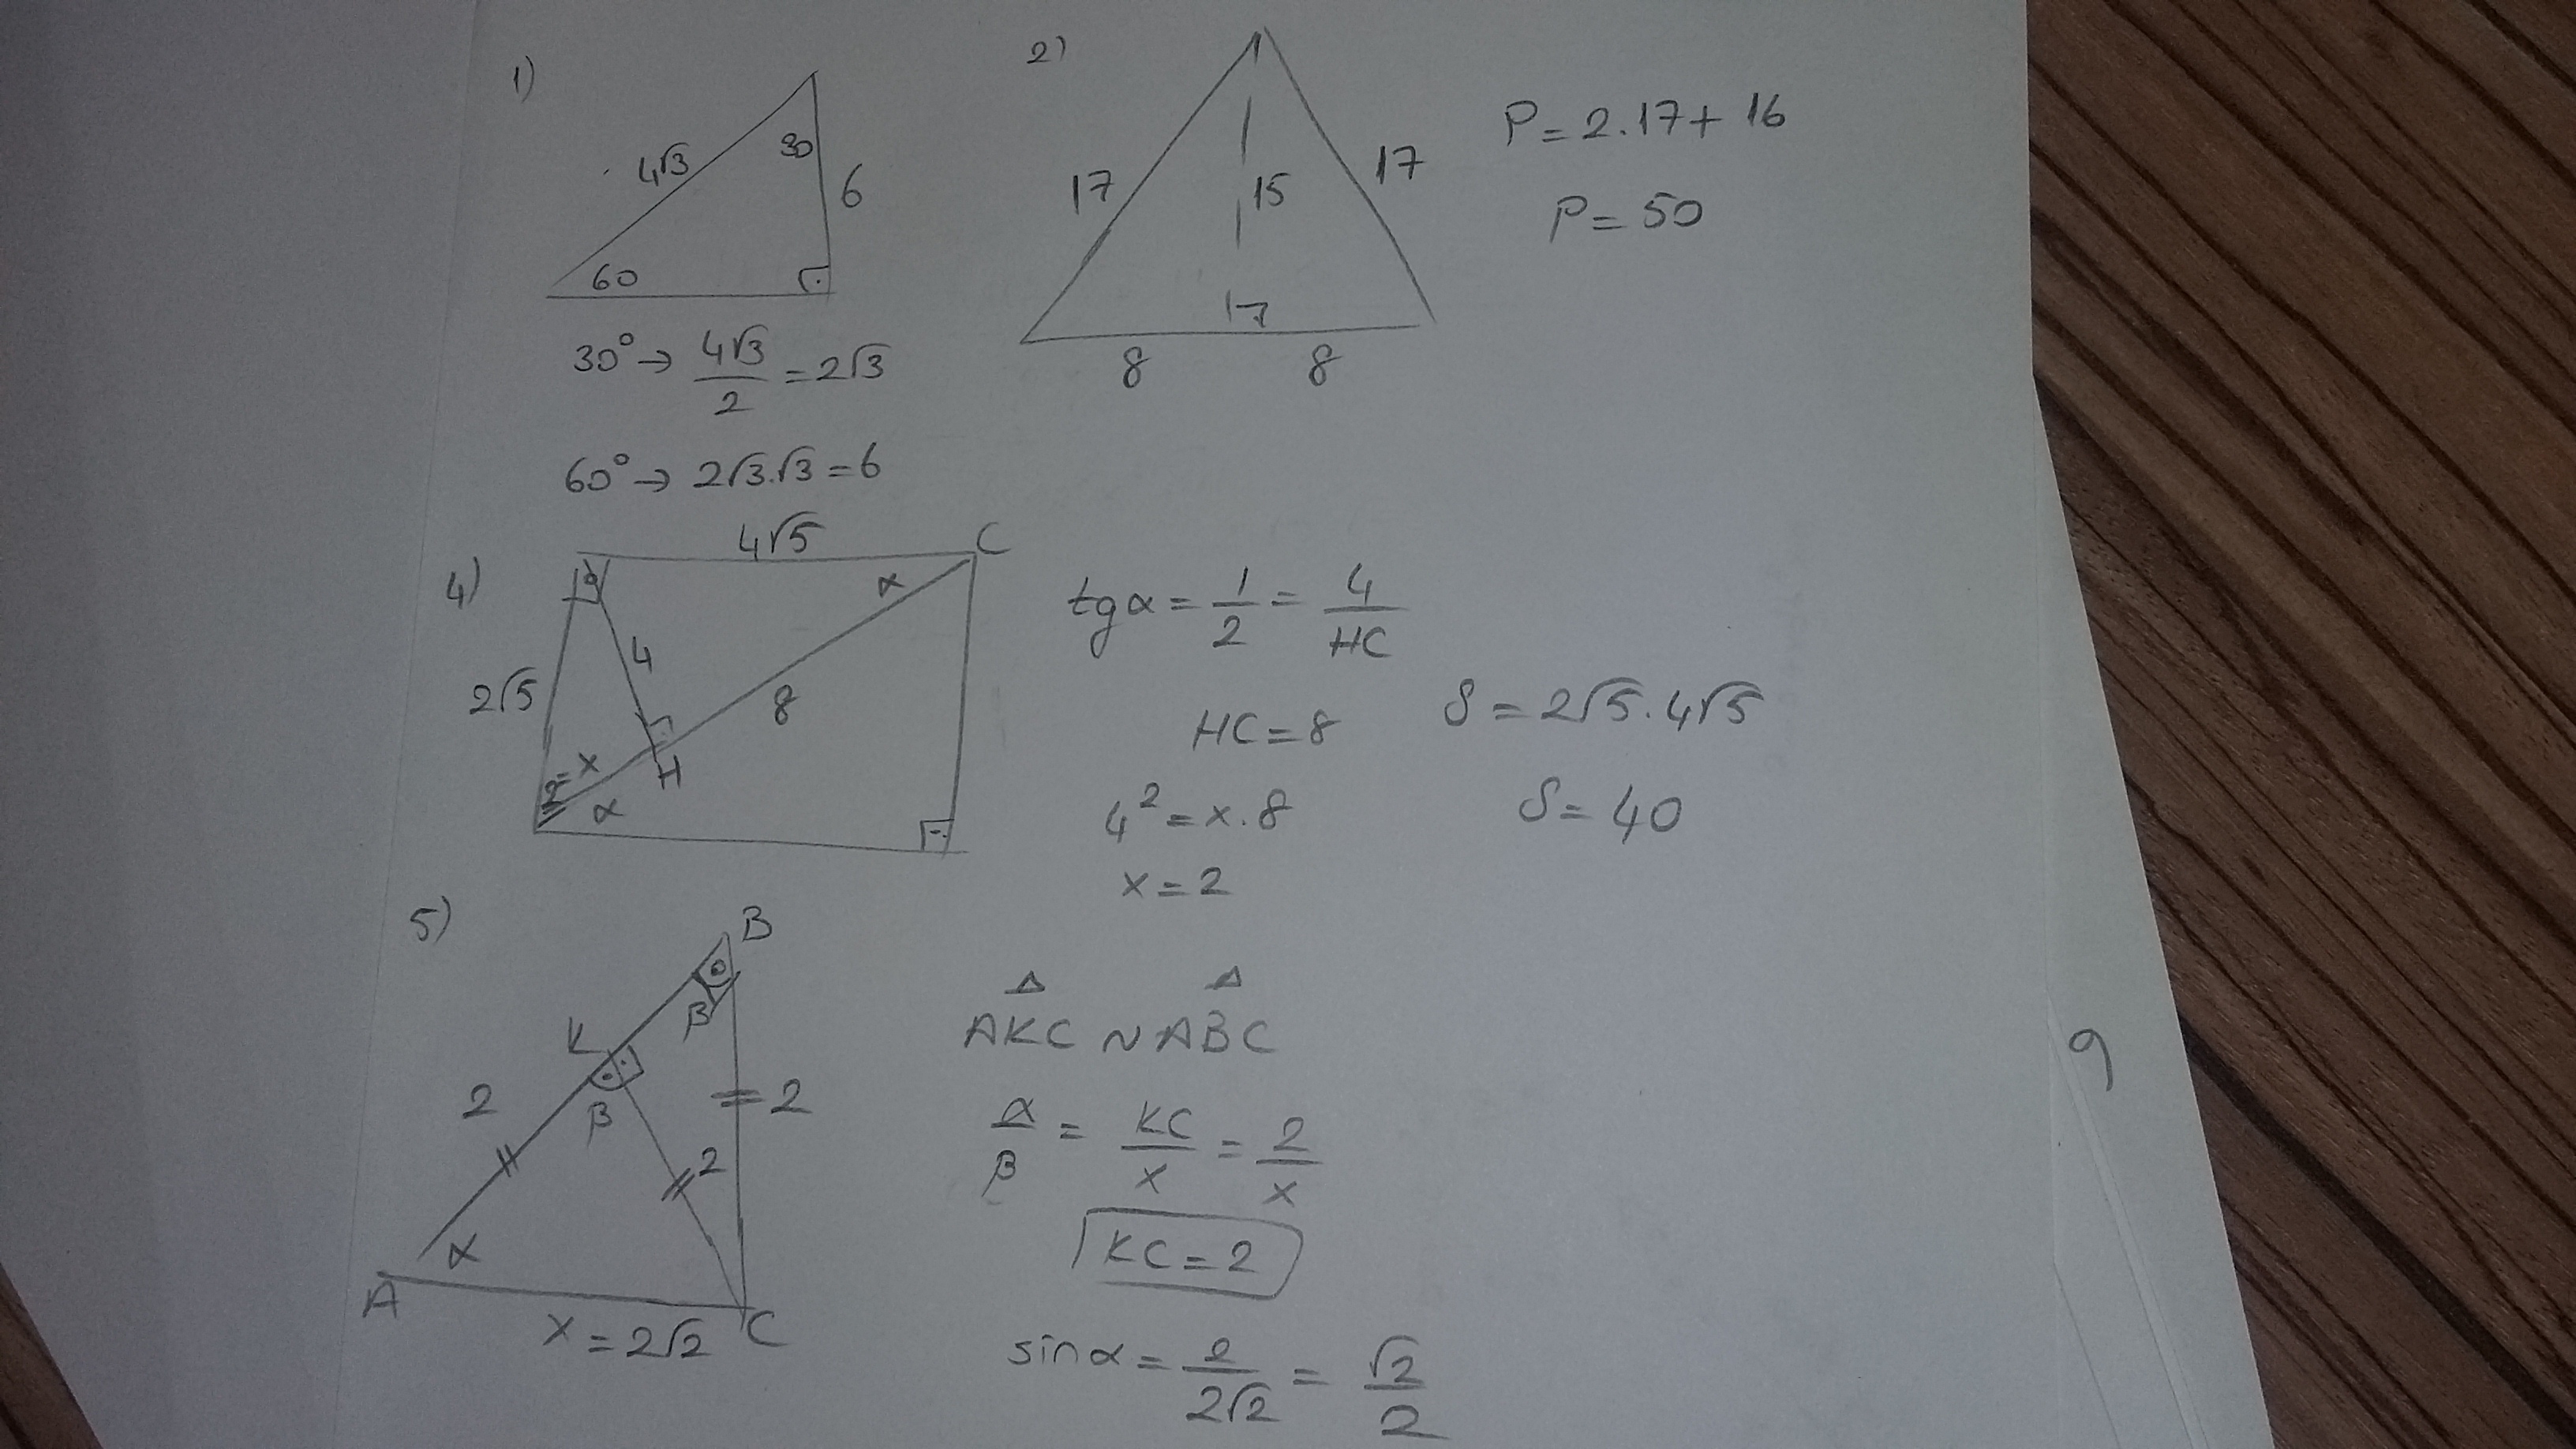 1)
4√3
30
6
60
30° → 4√3/2 = 2√3
60° → 2√3.√3 = 6
2)
17
15
17
17
8
8
P = 2.17 + 16
P = 50
4)
4√5
C
α
4
2√5
8
2 = x
H
α
tgα = 1/2 = 4/HC
HC = 8
4² = x.8
x = 2
S = 2√5.4√5
S = 40
5)
B
β
K
2
β
2
2
α
A
x = 2√2
C
AKC ~ ABC
α/β = KC/x = 2/x
KC = 2
sinα = 2/2√2 = √2/2